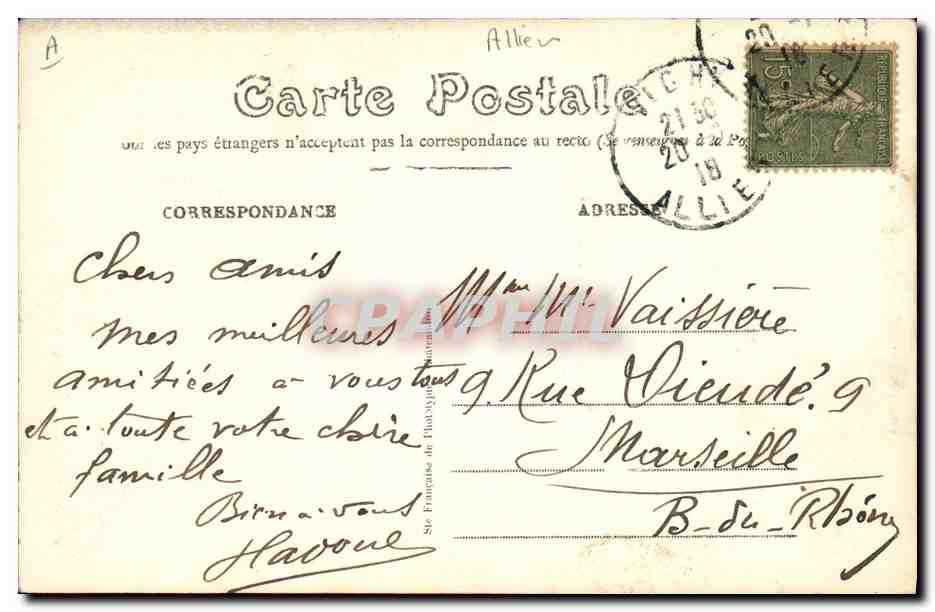 A
Allier
Carte Postale
les pays étrangers n'acceptent pas la correspondance au recto (Se renseigner à la
CORRESPONDANCE
ADRESSE
VICHY
21 30
20
18
ALLIER
20
18
RÉPUBLIQUE FRANÇAISE
15
POSTES
Chers amis
mes meilleures
amitiées a vous tous
et a toute votre chère
famille
Bien a vous
CPARHIL
Ste Française de Phototypie
Mme Mr Vaissière
9. Rue Dieudé. 9
Marseille
B-du-Rhône